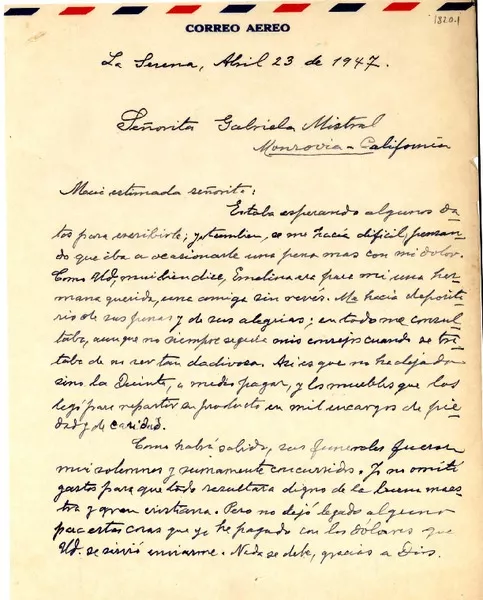 1820.1
CORREO AEREO
La Serena, Abril 23 de 1947.
Señorita Gabriela Mistral
Monrovia - California
Mui estimada señorita:
Estaba esperando algunos da-
tos para escribirle; y tambien, se me hacía difícil, pensan-
do que iba a ocasionarle una pena mas con mi dolor.
Como Ud. mui bien dice, Emelina era para mi, una her-
mana querida, una amiga sin revés. Me hacia deposita-
rio de sus penas y de sus alegrias; en todo me consul-
taba, aunque no siempre seguia mis consejos cuando se tra-
taba de no ser tan dadivosa. Asi es que no ha dejado
sino la Quinta, a medio pagar, y los muebles que los
legó para repartir su producto en mil encargos de pie-
dad y de caridad.
Como habrá sabido, sus funerales fueron
mui solemnes y sumamente concurridos. Yo no omití
gastos para que todo resultara digno de la buena maes-
tra y gran cristiana. Pero no dejó legado alguno
para estas cosas que yo he pagado con los dólares que
Ud. se sirvió enviarme. Nada se debe, gracias a Dios.